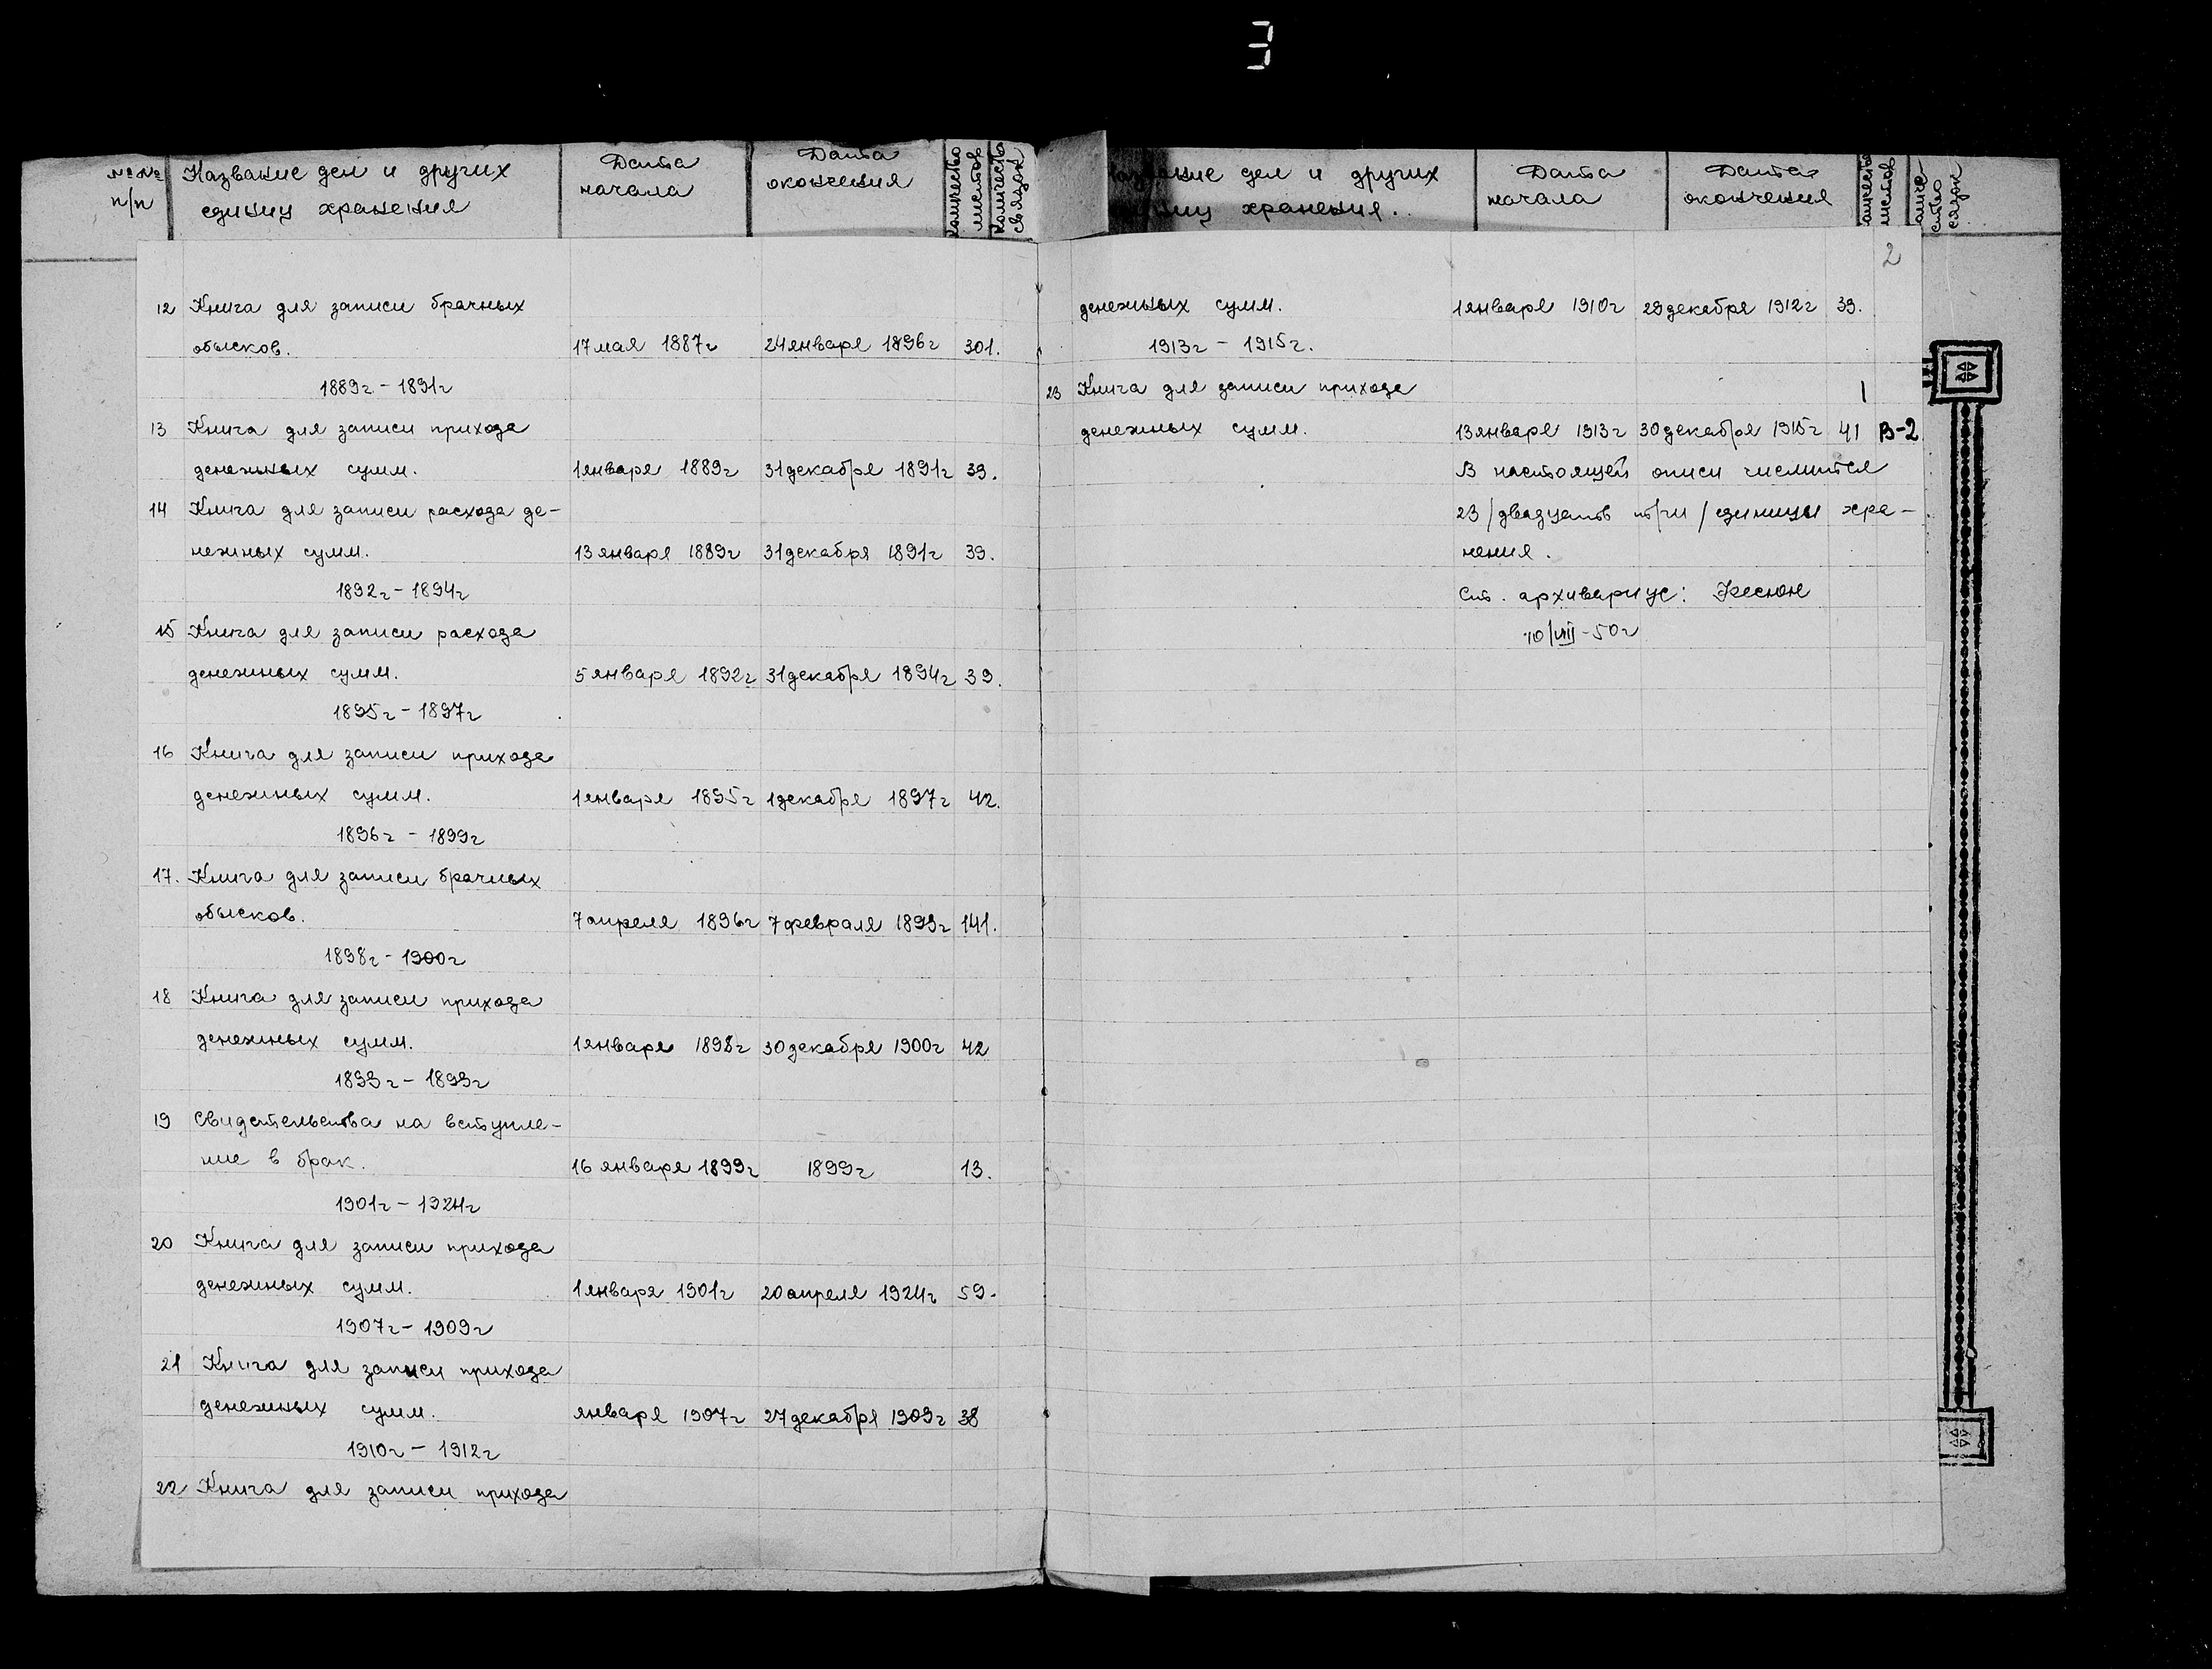 3
№№ п/п
Название дел и других
единиц хранения
Дата
начала
Дата
окончения
Количество листов
Количество связок
12 Книга для записи брачных
обысков. 17 мая 1887г 24 января 1896г 301.
1889г - 1891г
13 Книга для записи прихода
денежных сумм. 1 января 1889г 31 декабря 1891г 39.
14 Книга для записи расхода де-
нежных сумм. 13 января 1889г 31 декабря 1891г 39.
1892г - 1894г
15 Книга для записи расхода
денежных сумм. 5 января 1892г 31 декабря 1894г 39.
1895г - 1897г
16 Книга для записи прихода
денежных сумм. 1 января 1895г 1 декабря 1897г 42.
1896г - 1899г
17. Книга для записи брачных
обысков. 7 апреля 1896г 7 февраля 1899г 141.
1898г - 1900г
18 Книга для записи прихода
денежных сумм. 1 января 1898г 30 декабря 1900г 42
1899г - 1899г
19 Свидетельства на вступле-
ние в брак. 16 января 1899г 1899г 13.
1901г - 1924г
20 Книга для записи прихода
денежных сумм. 1 января 1901г 20 апреля 1924г 59.
1907г - 1909г
21 Книга для записи прихода
денежных сумм. января 1907г 27 декабря 1909г 38
1910г - 1912г
22 Книга для записи прихода
дел и других
хранения.
Дата
начала
Дата
окончения
листов
2
денежных сумм. 1 января 1910г 29 декабря 1912г 39.
1913г - 1915г.
23 Книга для записи прихода
денежных сумм. 13 января 1913г 30 декабря 1915г 41 В-2
В настоящей описи числится
23 /двадцать три/ единицы хра-
нения.
Ст. архивариус:
10/VIII-50г